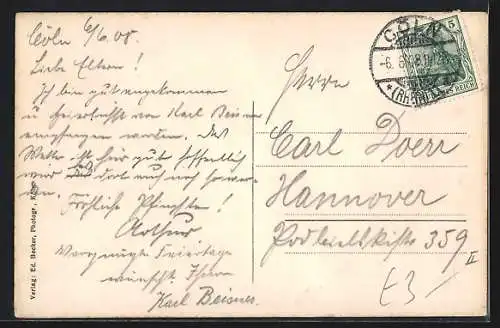 Cöln 6/6.08.
Liebe Eltern!
Ich bin gut angekommen
u. von Karl Beisner
empfangen worden. Das
Wetter ist hier gut hoffentlich
wird das dort auch noch so wer-
den. Fröhliche Pfingsten!
Arthur
Vergnügte Feiertage
wünscht Ihnen
Karl Beisner.
Verlag: Ed. Becker, Photogr., Köln
CÖLN
-6. 6. 08. 8
* (RHEIN)
5
REICH
Herrn
Carl Doerr
Hannover
Podbielskistr 359 II
£3-